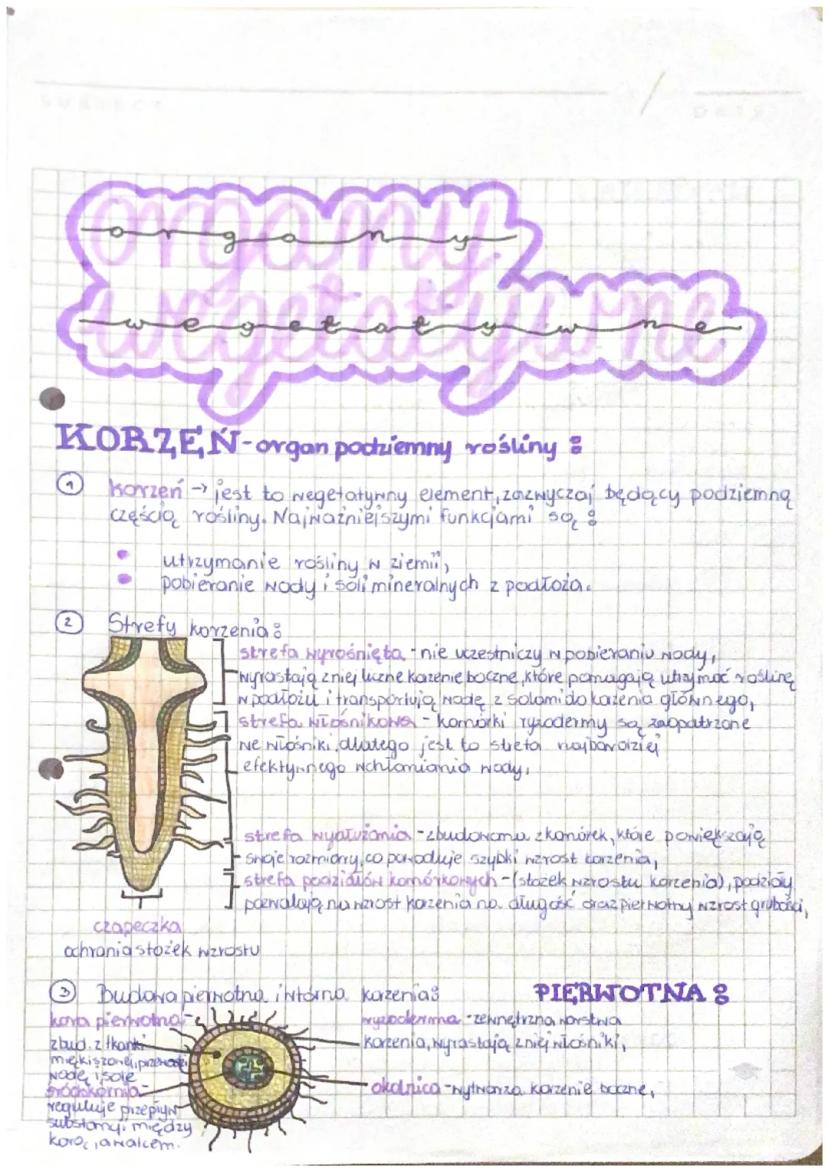 SUBJECT
DATE
organy
wegetatywne
KORZEŃ - organ podziemny rośliny :
① korzeń → jest to wegetatywny element, zazwyczaj będący podziemną
częścią rośliny. Najważniejszymi funkcjami są :
• utrzymanie rośliny w ziemii,
• pobieranie wody i soli mineralnych z podłoża.
② Strefy korzenia :
strefa wyrośnięta - nie uczestniczy w pobieraniu wody,
wyrastają z niej liczne korzenie boczne, które pomagają utrzymać roślinę
w podłożu i transportują wodę z solami do korzenia głównego,
strefa włośnikowa - komórki ryzodermy są zaopatrzone
we włośniki, dlatego jest to strefa najbardziej
efektywnego wchłaniania wody,
strefa wydłużania - zbudowana z komórek, które powiększają
swoje rozmiary, co powoduje szybki wzrost korzenia,
strefa podziałów komórkowych - (stożek wzrostu korzenia), podziały
pozwalają na wzrost korzenia na długość oraz pierwotny wzrost grubości,
czapeczka
ochrania stożek wzrostu
③ Budowa pierwotna i wtórna korzenia :
PIERWOTNA :
kora pierwotna -
zbud. z tkanki
miękiszowej, przewodzi
wodę i sole
śródskórnia -
reguluje przepływ
substancji między
korą, a walcem.
ryzoderma - zewnętrzna warstwa
korzenia, wyrastają z niej włośniki,
okolnica - wytwarza korzenie boczne,